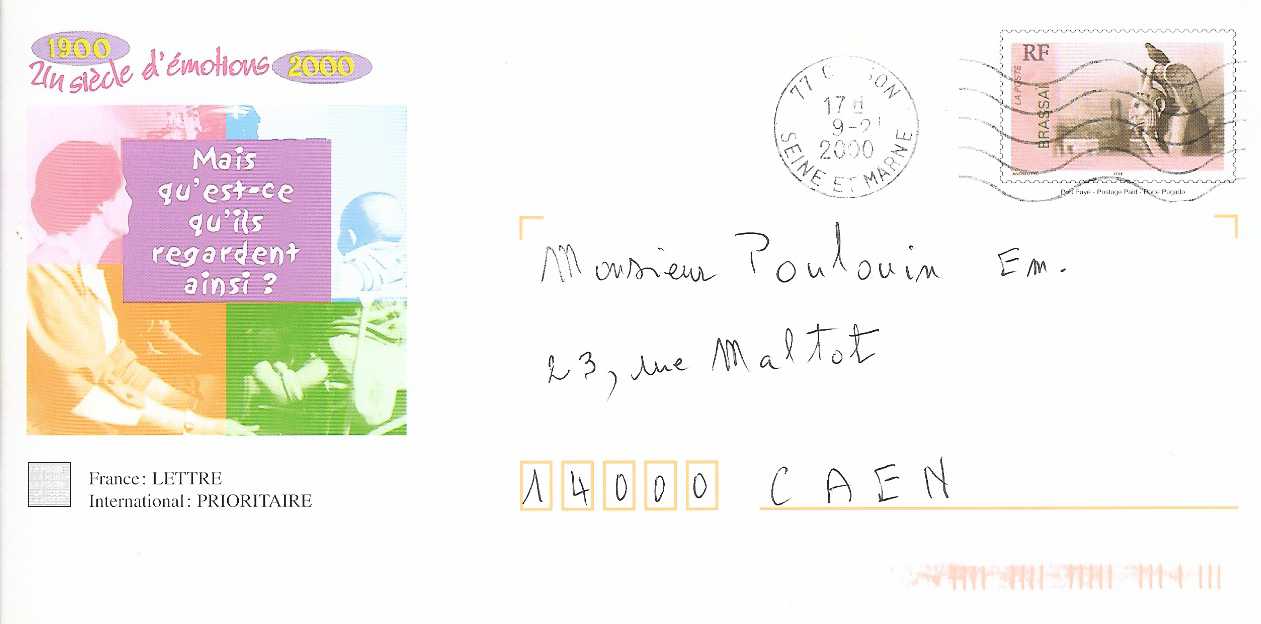 1900
Un siècle d'émotions
2000
Mais
qu'est-ce
qu'ils
regardent
ainsi ?
France : LETTRE
International : PRIORITAIRE
77
SEINE ET MARNE
17
9-2
2000
RF
LA POSTE
BRASSAÏ
Postage Paid
Monsieur Poulouin Em.
23, rue Maltot
14000 CAEN